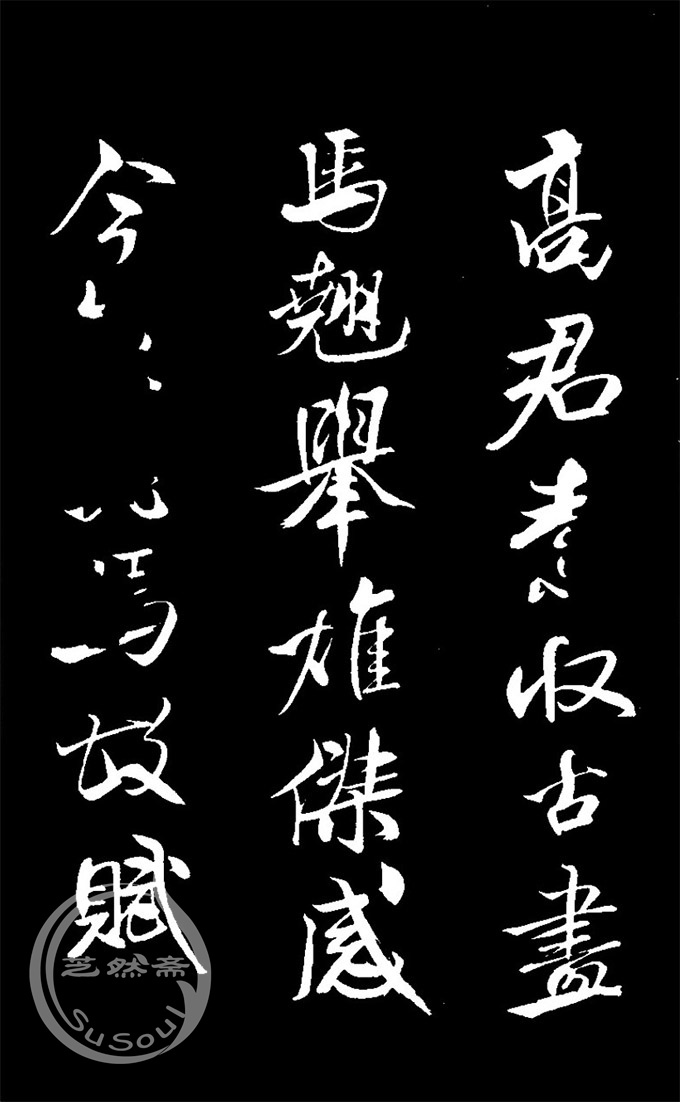 高君素收古畫
馬翹舉雄傑感
今無此馬故賦
芝然斋
SuSoul